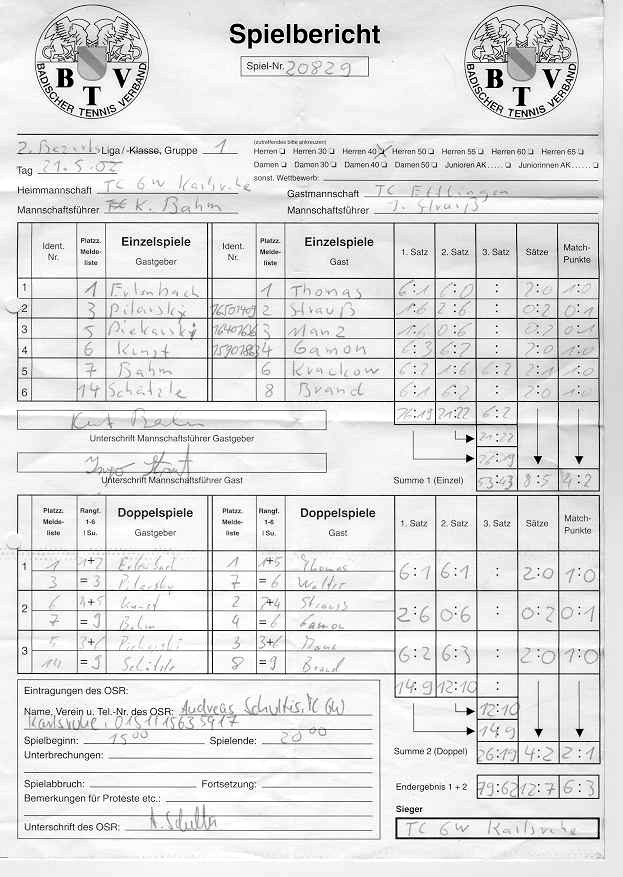 Spielbericht
BADISCHER TENNIS VERBAND
BTV
BADISCHER TENNIS VERBAND
BTV
Spiel-Nr. 20829
(zutreffendes bitte ankreuzen)
2. Bezirks Liga/-Klasse, Gruppe 1
Herren Herren 30 Herren 40 Herren 50 Herren 55 Herren 60 Herren 65
Damen Damen 30 Damen 40 Damen 50 Junioren AK..... Juniorinnen AK.....
Tag 21.5.02
sonst. Wettbewerb:
Heimmannschaft TC GW Karlsruhe Gastmannschaft TC Ettlingen
Mannschaftsführer K. Bahm Mannschaftsführer J. Strauß
Ident. Nr. Platzz. Melde-liste Einzelspiele Gastgeber Ident. Nr. Platzz. Melde-liste Einzelspiele Gast 1. Satz 2. Satz 3. Satz Sätze Match-Punkte
1 1 Erlenbach 1 Thomas 6:1 6:0 : 2:0 1:0
2 3 Pilarsky 2 Strauß 1:6 2:6 : 0:2 0:1
3 5 Piekarski 3 Manz 1:6 0:6 : 0:2 0:1
4 6 Kunst 4 Gamon 6:3 6:2 : 2:0 1:0
5 7 Bahm 6 Krackow 6:2 1:6 6:2 2:1 1:0
6 14 Schätzle 8 Brand 6:1 6:2 : 2:0 1:0
26:19 21:22 6:2
Unterschrift Mannschaftsführer Gastgeber
21:22
26:19
Unterschrift Mannschaftsführer Gast
Summe 1 (Einzel) 53:43 8:5 4:2
Platzz. Melde-liste Rangf. 1-6 / Su. Doppelspiele Gastgeber Platzz. Melde-liste Rangf. 1-6 / Su. Doppelspiele Gast 1. Satz 2. Satz 3. Satz Sätze Match-Punkte
1 1 1+2 Erlenbach 1 1+5 Thomas 6:1 6:1 : 2:0 1:0
3 =3 Pilarsky 7 =6 Walter
2 6 4+5 Kunst 2 2+4 Strauss 2:6 0:6 : 0:2 0:1
7 =9 Bahm 4 =6 Gamon
3 5 3+6 Piekarski 3 3+6 Manz 6:2 6:3 : 2:0 1:0
14 =9 Schätzle 8 =9 Brand
14:9 12:10 :
Eintragungen des OSR:
12:10
Name, Verein u. Tel.-Nr. des OSR: Andreas Schultis, TC GW
14:9
Karlsruhe, 0151115635917
Spielbeginn: 15 00 Spielende: 20 00
Summe 2 (Doppel) 26:19 4:2 2:1
Unterbrechungen:
Spielabbruch: Fortsetzung:
Endergebnis 1 + 2 79:62 12:7 6:3
Bemerkungen für Proteste etc.:
Sieger
Unterschrift des OSR: A. Schultis
TC GW Karlsruhe